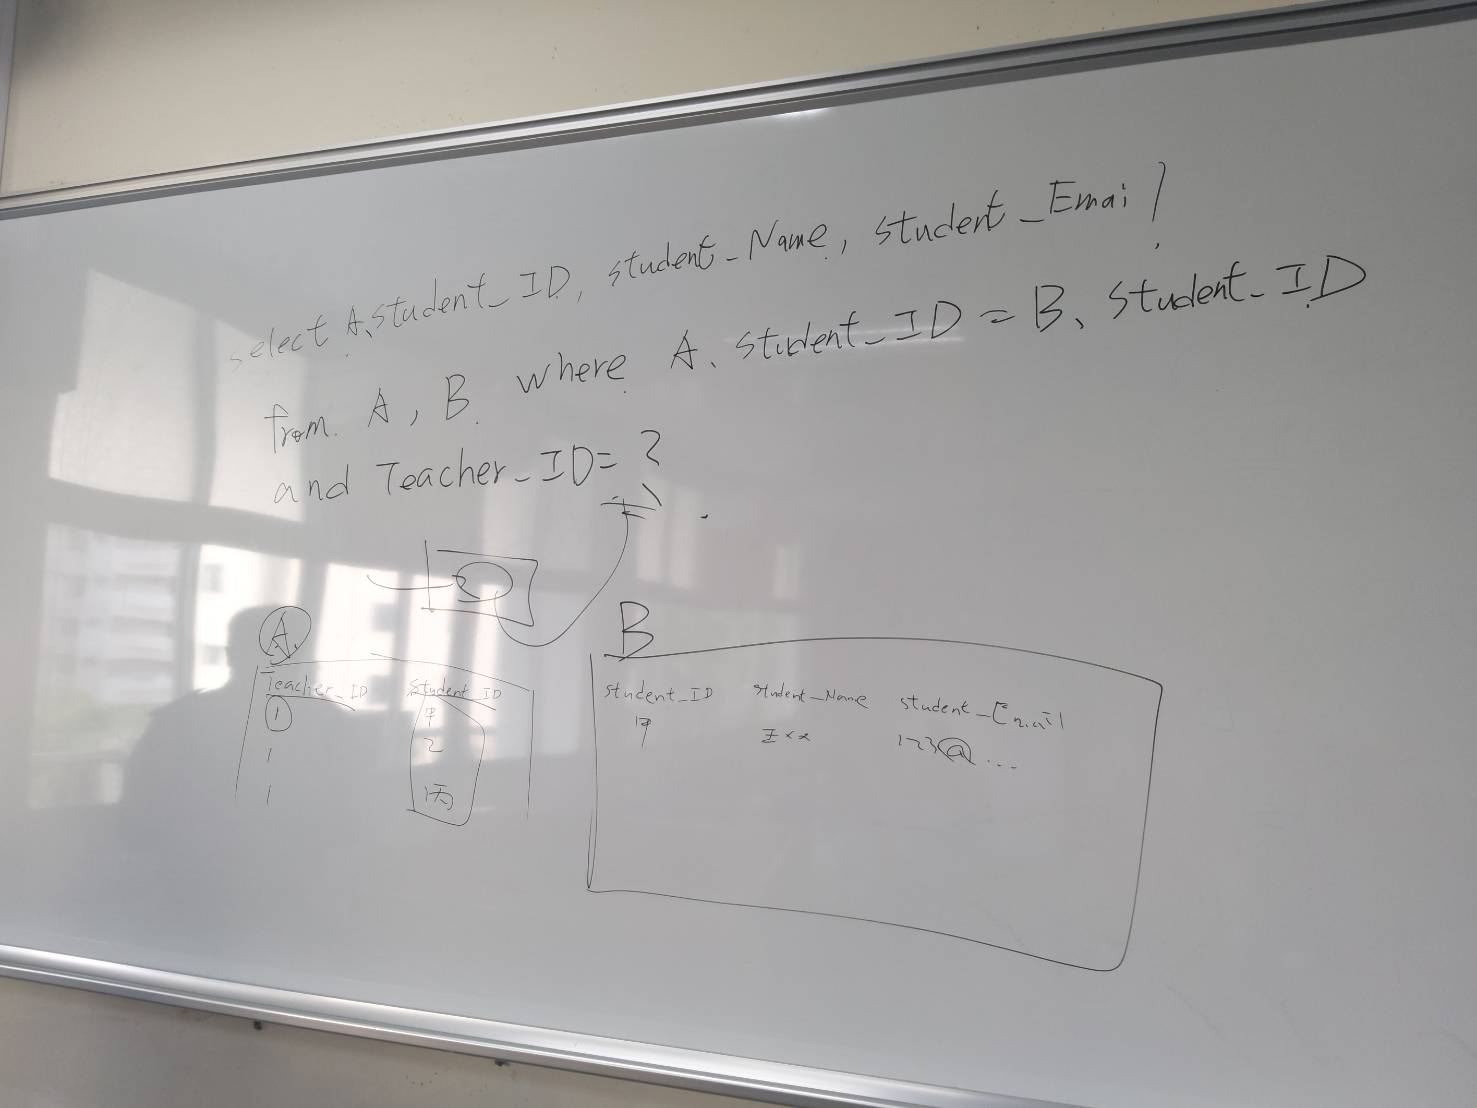 select A.student_ID, student_Name, student_Email
from A, B where A.student_ID = B.student_ID
and Teacher_ID = ?
A
Teacher_ID student_ID
1 甲
1 乙
1 丙
B
student_ID student_Name student_Email
甲 王xx 123@...